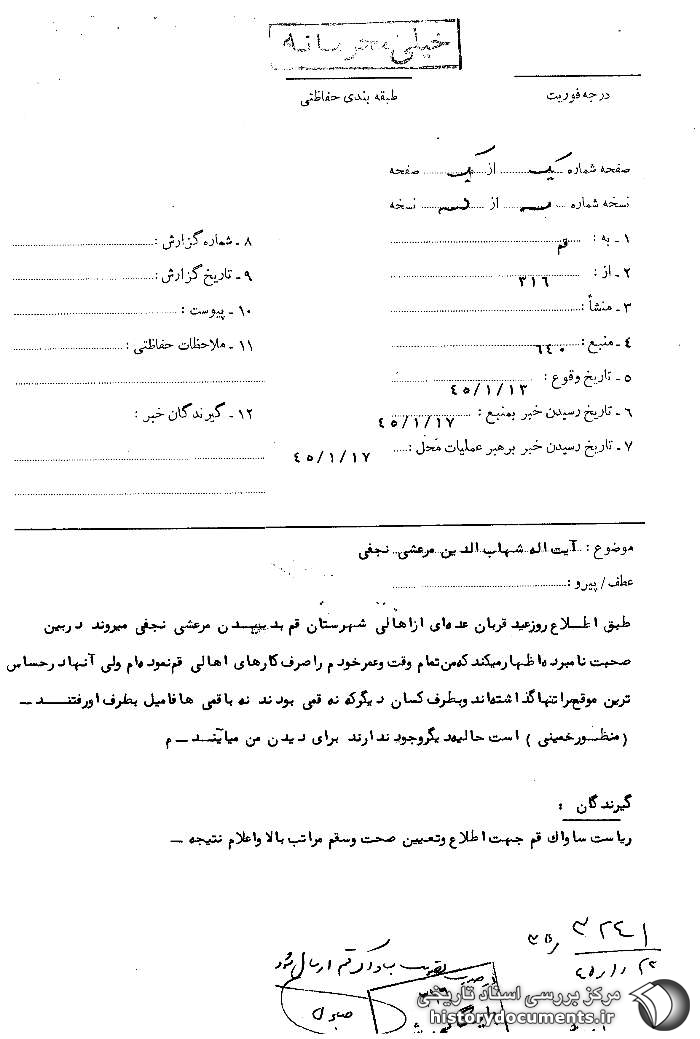 خیلی محرمانه
درجه فوریت
طبقه بندی حفاظتی
صفحه شماره یک از یک صفحه
نسخه شماره از نسخه
۱ـ به : قم
۲ـ از : ۳۱۶
۳ـ منشأ :
۴ـ منبع : ۶۴۰
۵ـ تاریخ وقوع : ۴۵/۱/۱۳
۶ـ تاریخ رسیدن خبر بمنبع : ۴۵/۱/۱۷
۷ـ تاریخ رسیدن خبر برهبر عملیات محل : ۴۵/۱/۱۷
۸ـ شماره گزارش :
۹ـ تاریخ گزارش :
۱۰ـ پیوست :
۱۱ـ ملاحظات حفاظتی :
۱۲ـ گیرندگان خبر :
موضوع : آیت اله شهاب الدین مرعشی نجفی
عطف/پیرو :
طبق اطلاع روز عید قربان عده ای از اهالی شهرستان قم بدیدن مرعشی نجفی میروند در بین
صحبت نامبرده اظهار میکند که من تمام وقت و عمر خودم را صرف کارهای اهالی قم نموده ام ولی آنها در حساس
ترین موقع مرا تنها گذاشته اند و بطرف کسان دیگر که نه قمی بودند نه با قمی ها فامیل بطرف او رفتند ـ
(منظور خمینی ) است حالیه دیگر وجود ندارند برای دیدن من میآیند ـ م
گیرندگان :
ریاست ساواک قم جهت اطلاع و تعیین صحت و سقم مراتب بالا و اعلام نتیجه ـ
۳۲۴۱
بساواک قم ارسال شود
مرکز بررسی اسناد تاریخی
historydocuments.ir